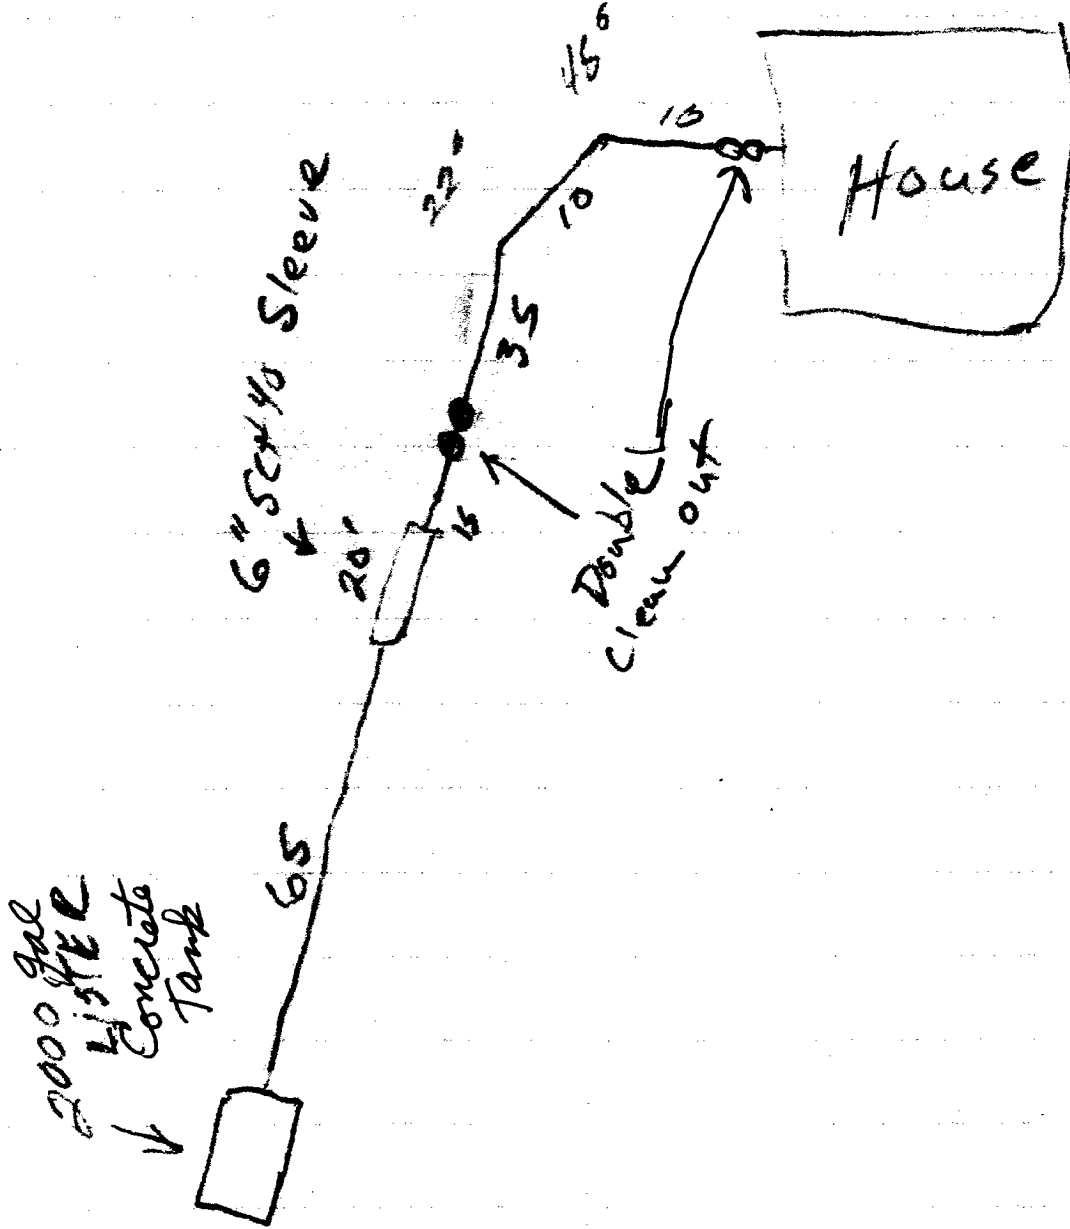 45°
10
House
22"
10
6" SCH 40 Sleeve
35
20'
15
Double
Clean out
65
2000 gal
LISTER
Concrete
Tank